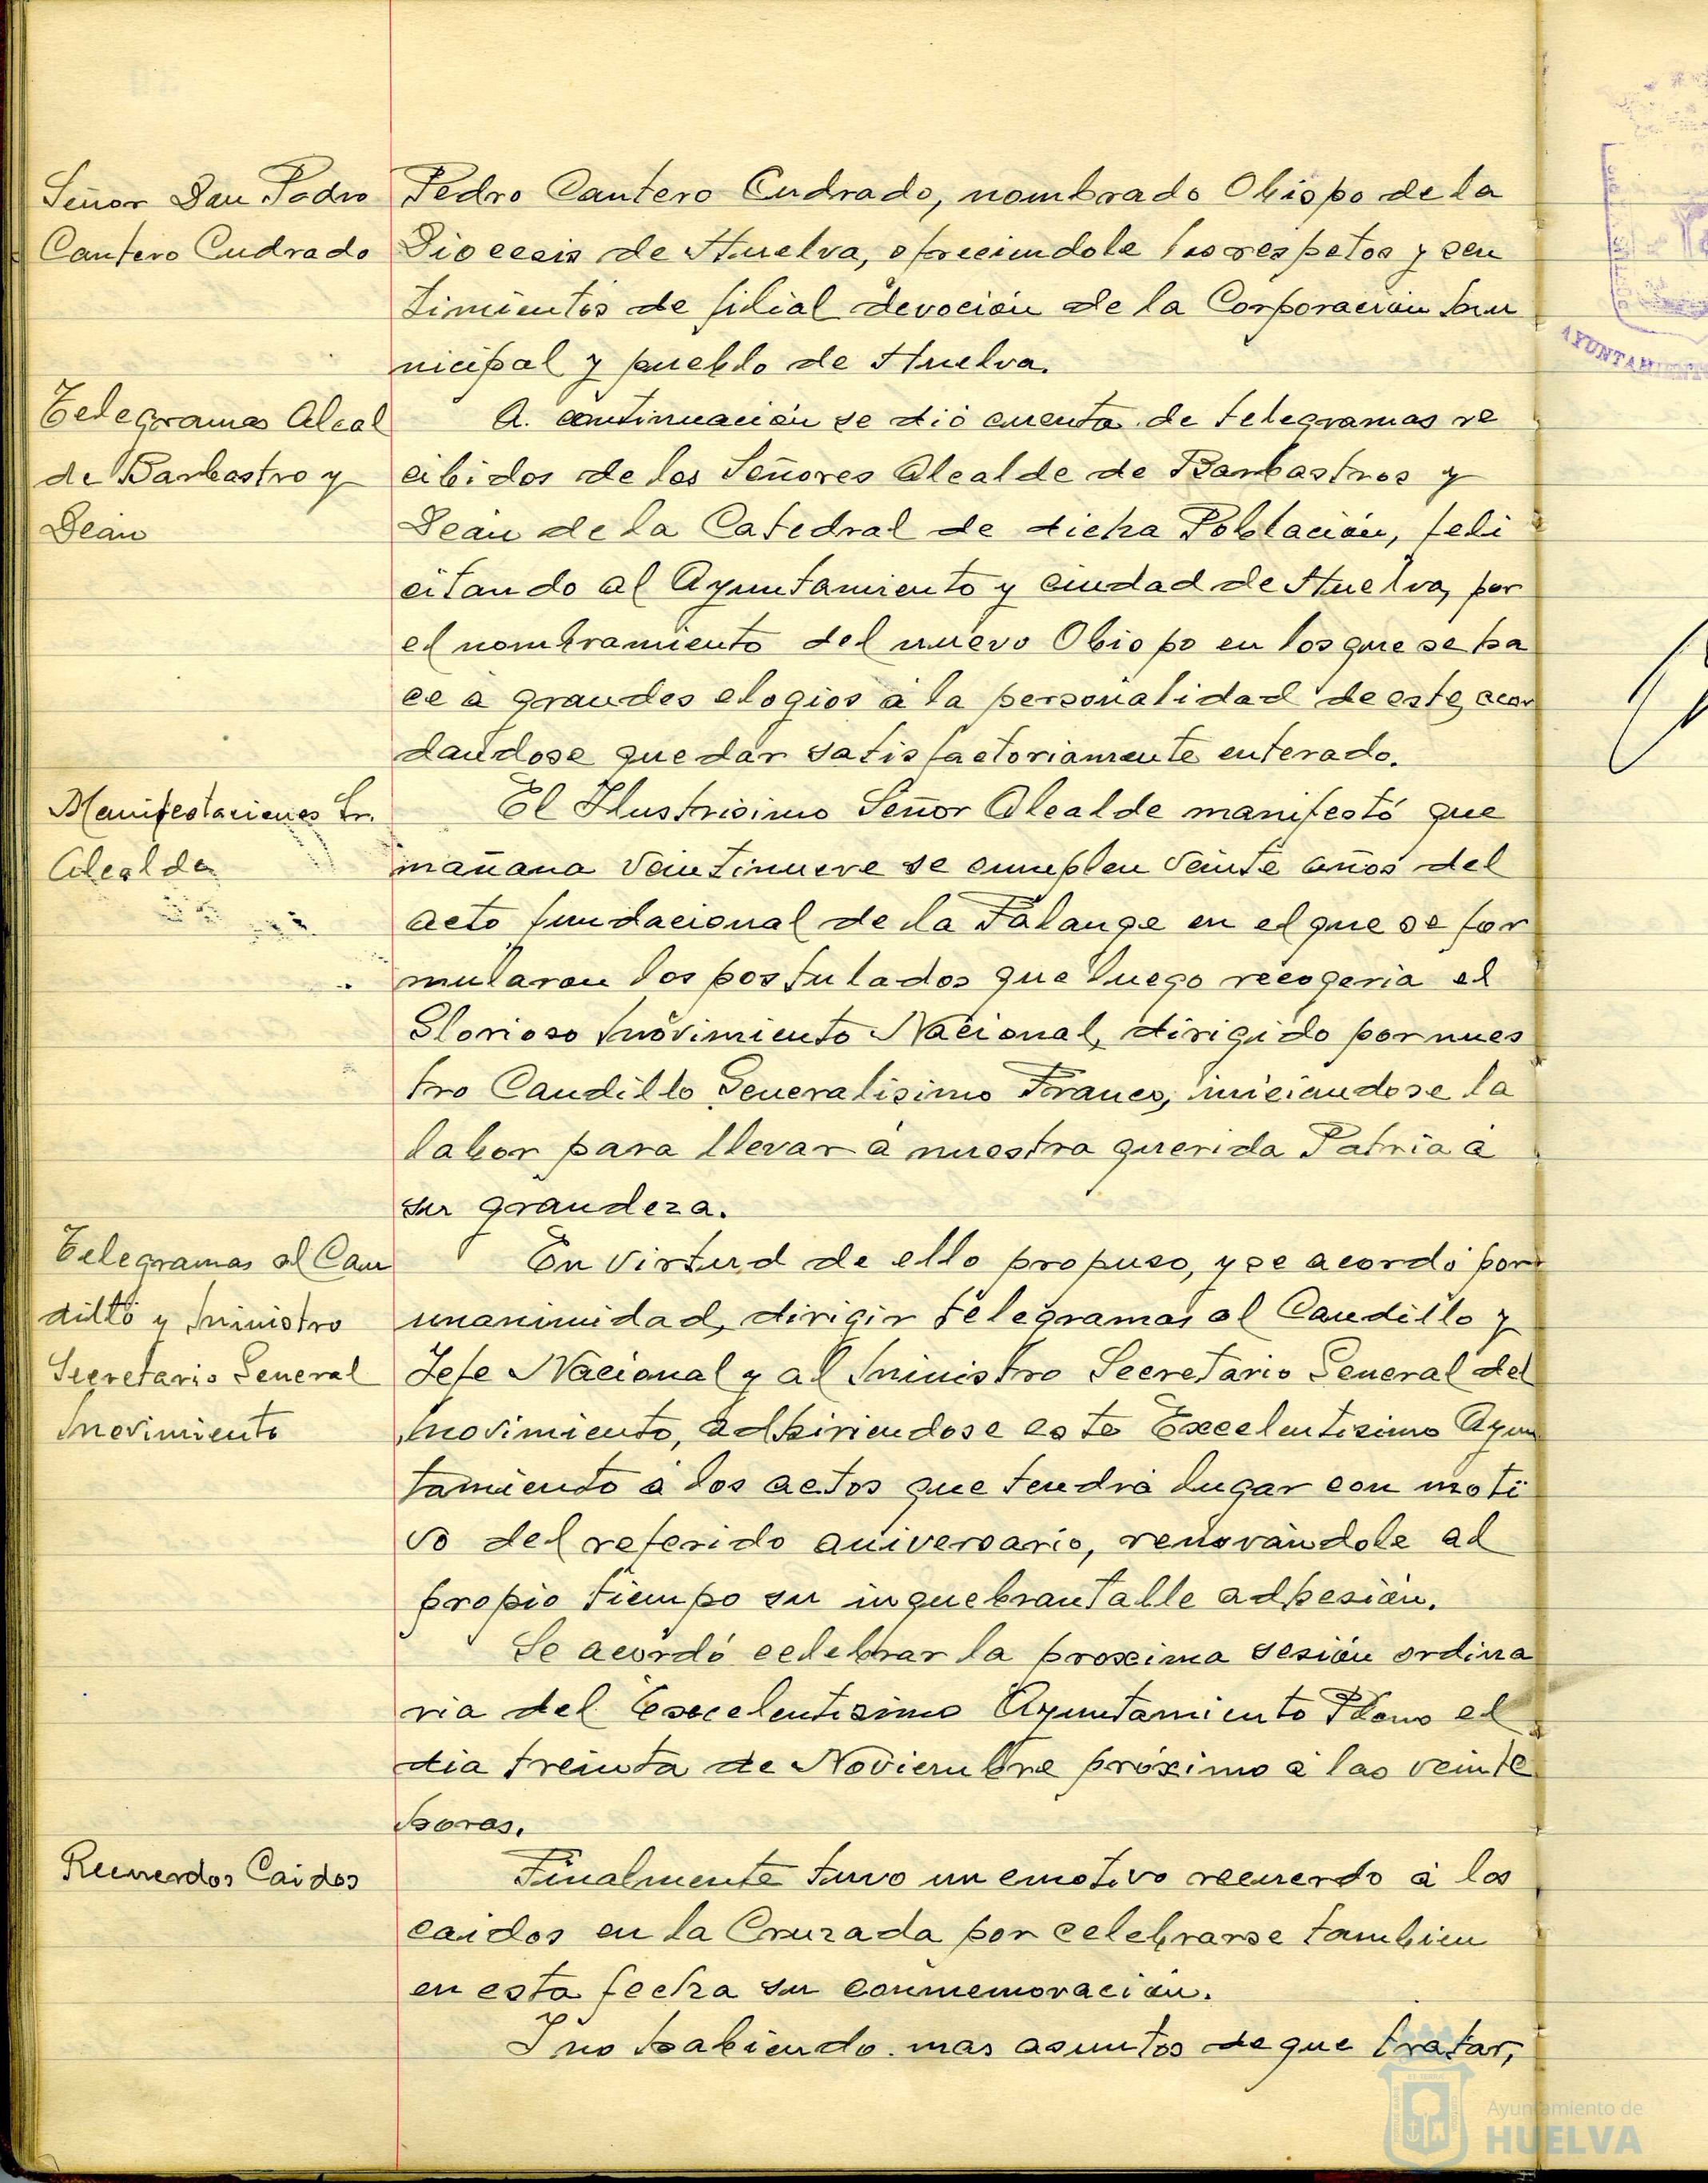 Señor Don Pedro
Cantero Cudrado
Pedro Cantero Cudrado, nombrado Obispo de la
Diocesis de Huelva, ofreciendole los respetos y sen
timientos de filial devoción de la Corporación Mu
nicipal y pueblo de Huelva.
Telegramas Alcal
de Barbastro y
Dean
A continuación se dió cuenta de telegramas re
cibidos de los Señores Alcalde de Barbastros y
Dean de la Catedral de dicha Poblacion, feli
citando al Ayuntamiento y ciudad de Huelva, por
el nombramiento del nuevo Obispo en los que se ha
ce a grandes elogios á la personalidad de este, acor
dandose quedar satisfactoriamente enterado.
Manifestaciones Sr.
Alcalde
El Ilustrisimo Señor Alcalde manifestó que
mañana veintinueve se cumplen veinte años del
acto fundacional de la Falange en el que se for
mularon los postulados que luego recogeria el
Glorioso Movimiento Nacional, dirigido por nues
tro Caudillo Generalisimo Franco, iniciandose la
labor para llevar á nuestra querida Patria á
su grandeza.
Telegramas al Cau
dillo y Ministro
Secretario General
Movimiento
En virtud de ello propuso, y se acordó por
unanimidad, dirigir telegramas al Caudillo y
Jefe Nacional y al Ministro Secretario General del
Movimiento, adhiriendose este Excelentisimo Ayun
tamiento á los actos que tendrá lugar con moti
vo del referido aniversario, renovándole al
propio tiempo su inquebrantable adhesión.
Se acordó celebrar la proxima sesión ordina
ria del Excelentisimo Ayuntamiento Pleno el
dia treinta de Noviembre próximo á las veinte
horas.
Recuerdos Caidos
Finalmente tuvo un emotivo recuerdo á los
caidos en la Cruzada por celebrarse tambien
en esta fecha su conmemoracion.
Y no habiendo mas asuntos de que tratar,
AYUNTAMIENTO
Ayuntamiento de
HUELVA